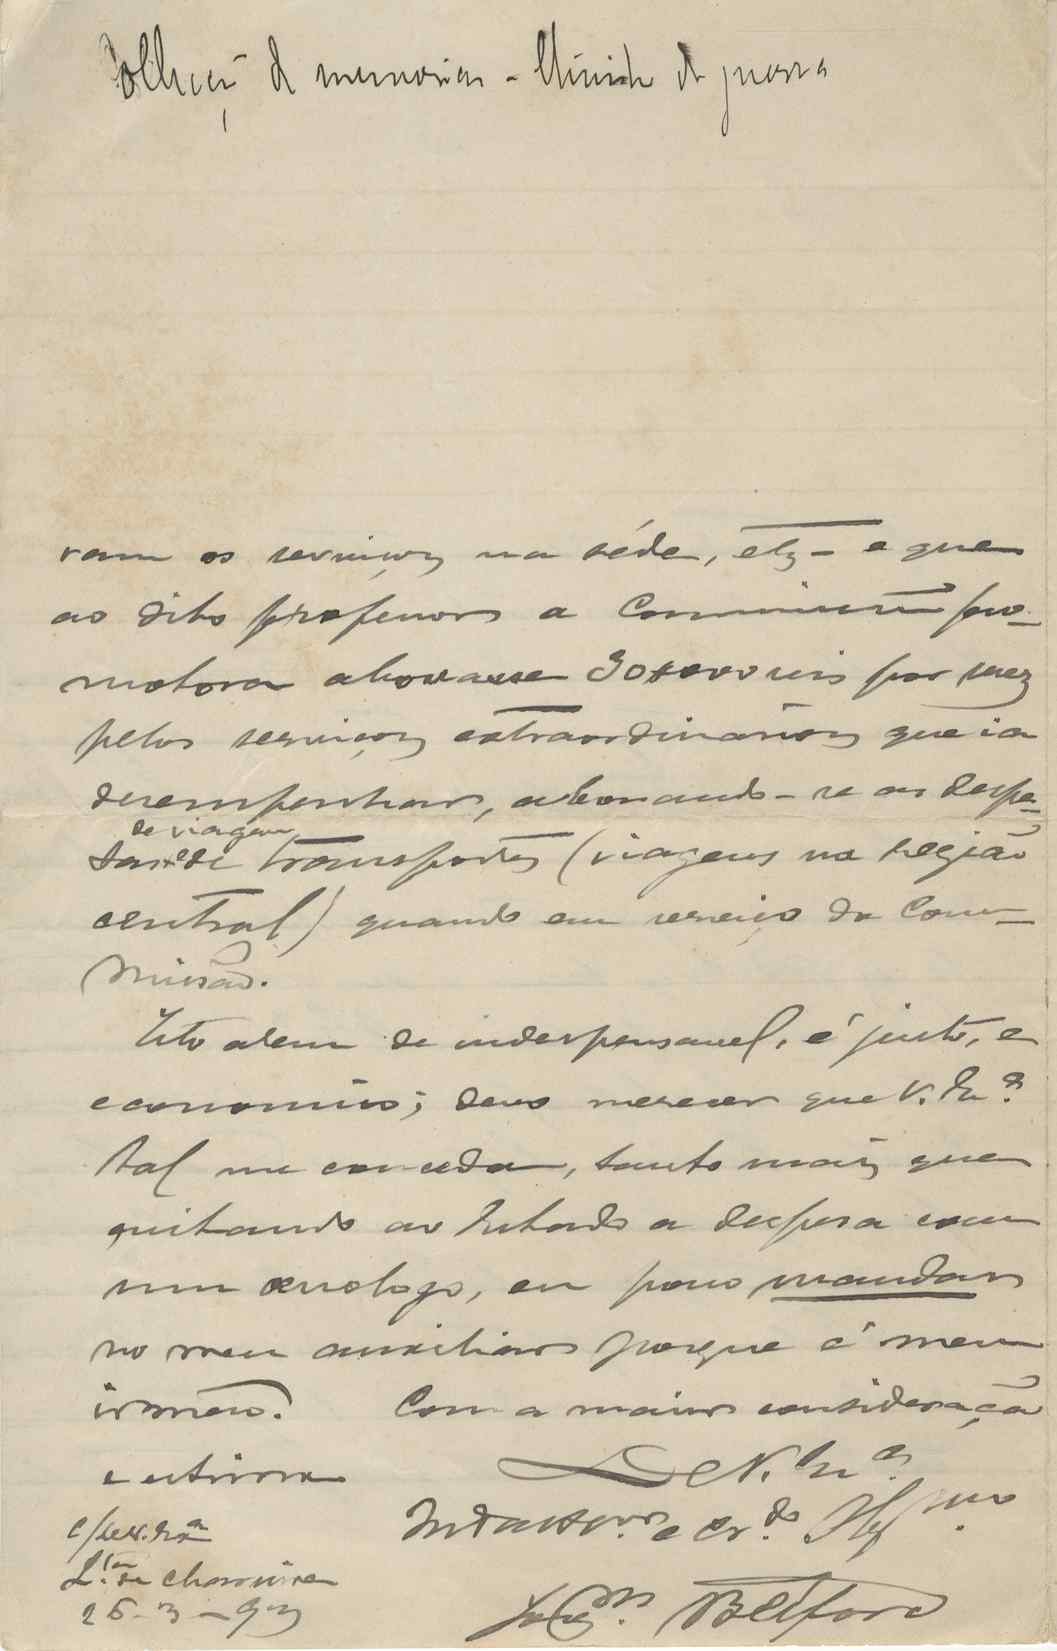 de memorias - de guerra
ram os serviços na séde, etc - e que
ao dito professor a Commissão pro-
motora abonasse 30$000 reis por mez
pelos serviços extraordinarios que ia
desempenhar, abonando-se as despe-
de viagem
zas de transportes (viagens na região
central) quando em serviço da Com-
missão.
Isto alem de indespensavel, é justo, e
economico; devo merecer que V. Ex.ª
tal me conceda, tanto mais que
quitando ao Estado a despesa com
um œnologo, eu posso mandar
no meu auxiliar porque é meu
irmão. Com a maior consideração
e estima
De V. Ex.ª
e cr.do
C/ V. Ex.ª
Q.ta da Charneira
25-3-93
Belford